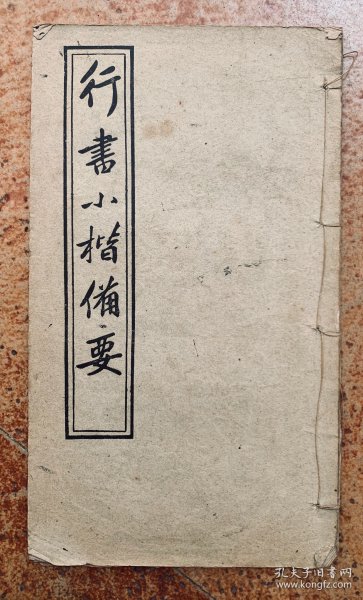 行書小楷備要
孔夫子旧书网
www.kongfz.com